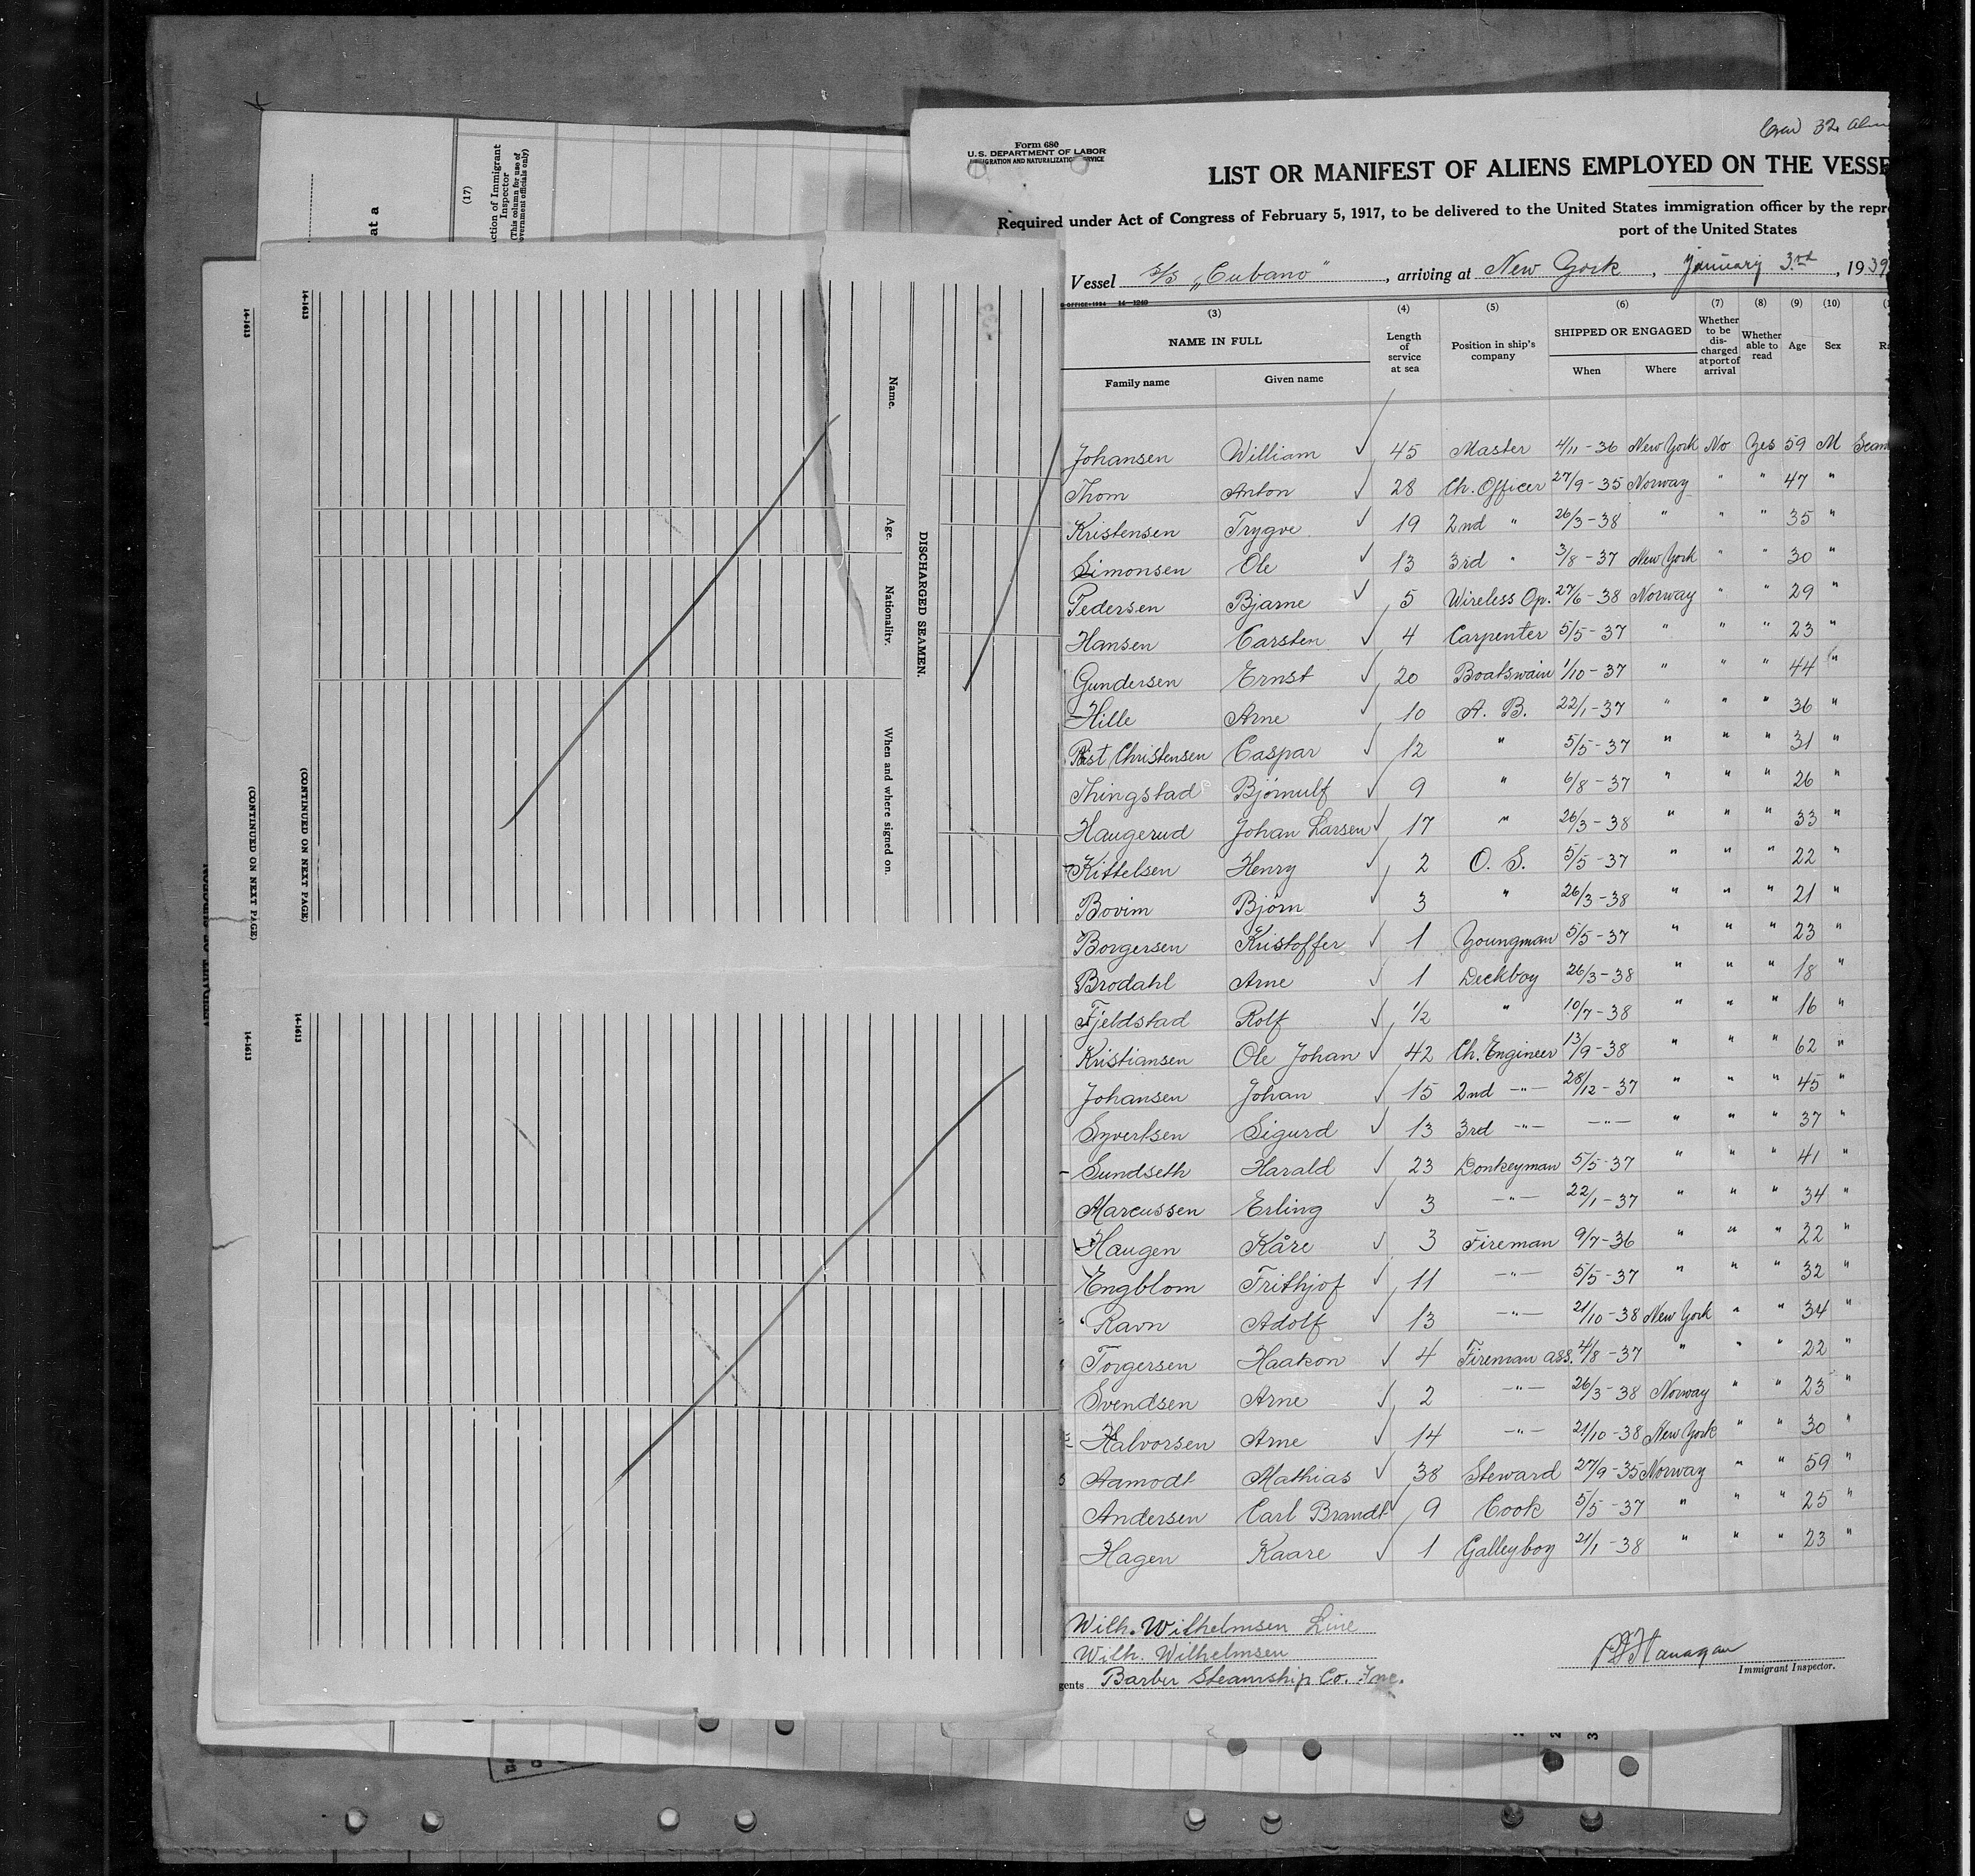 (17)
Action of Immigrant
Inspector
(This column for use of
Government officials only)
at a
14-1613
14-1613
(CONTINUED ON NEXT PAGE)
(CONTINUED ON NEXT PAGE)
14-1613
14-1613
Name.
Age.
Nationality.
When and where signed on.
DISCHARGED SEAMEN.
Crew 32
Form 680
U.S. DEPARTMENT OF LABOR
IMMIGRATION AND NATURALIZATION SERVICE
LIST OR MANIFEST OF ALIENS EMPLOYED ON THE VESSE
Required under Act of Congress of February 5, 1917, to be delivered to the United States immigration officer by the repre
port of the United States
Vessel S/S „Cubano", arriving at New York, January 3rd, 1939
OFFICE: 1934 14-1240
(3) (4) (5) (6) (7) (8) (9) (10)
NAME IN FULL Length of service at sea Position in ship's company SHIPPED OR ENGAGED Whether to be dis-charged at port of arrival Whether able to read Age Sex
Family name Given name When Where
Johansen William ✓ 45 Master 4/11-36 New York No Yes 59 M Scan
Thom Anton ✓ 28 Ch. Officer 27/9-35 Norway " " 47 "
Kristensen Trygve ✓ 19 2nd " 26/3-38 " " " 35 "
Simonsen Ole ✓ 13 3rd " 3/8-37 New York " " 30 "
Pedersen Bjarne ✓ 5 Wireless Op. 27/6-38 Norway " " 29 "
Hansen Carsten ✓ 4 Carpenter 5/5-37 " " " 23 "
Gundersen Ernst ✓ 20 Boatswain 1/10-37 " " " 44 "
Hille Arne ✓ 10 A. B. 22/1-37 " " " 36 "
Christensen Caspar ✓ 12 " 5/5-37 " " " 31 "
Thingstad Bjørnulf ✓ 9 " 6/8-37 " " " 26 "
Haugerud Johan Larsen ✓ 17 " 26/3-38 " " " 33 "
Kittelsen Henry ✓ 2 O. S. 5/5-37 " " " 22 "
Bovim Bjørn ✓ 3 " 26/3-38 " " " 21 "
Borgersen Kristoffer ✓ 1 Youngman 5/5-37 " " " 23 "
Brodahl Arne ✓ 1 Deckboy 26/3-38 " " " 18 "
Fjeldstad Rolf ✓ 1/2 " 10/7-38 " " " 16 "
Kristiansen Ole Johan ✓ 42 Ch. Engineer 13/9-38 " " " 62 "
Johansen Johan ✓ 15 2nd -"- 28/12-37 " " " 45 "
Syvertsen Sigurd ✓ 13 3rd -"- -"- " " " 37 "
Sundseth Harald ✓ 23 Donkeyman 5/5-37 " " " 41 "
Marcussen Erling ✓ 3 -"- 22/1-37 " " " 34 "
Haugen Kåre ✓ 3 Fireman 9/7-36 " " " 22 "
Engblom Frithjof ✓ 11 -"- 5/5-37 " " " 32 "
Ravn Adolf ✓ 13 -"- 21/10-38 New York " " 34 "
Torgersen Haakon ✓ 4 Fireman ass. 4/8-37 " " " 22 "
Svendsen Arne ✓ 2 -"- 26/3-38 Norway " " 23 "
Halvorsen Arne ✓ 14 -"- 21/10-38 New York " " 30 "
Aamodt Mathias ✓ 38 Steward 27/9-35 Norway " " 59 "
Andersen Carl Brandt ✓ 9 Cook 5/5-37 " " " 25 "
Hagen Kaare ✓ 1 Galleyboy 21/1-38 " " " 23 "
Wilh. Wilhelmsen Line
Wilh. Wilhelmsen
gents Barber Steamship Co. Inc.
Immigrant Inspector.